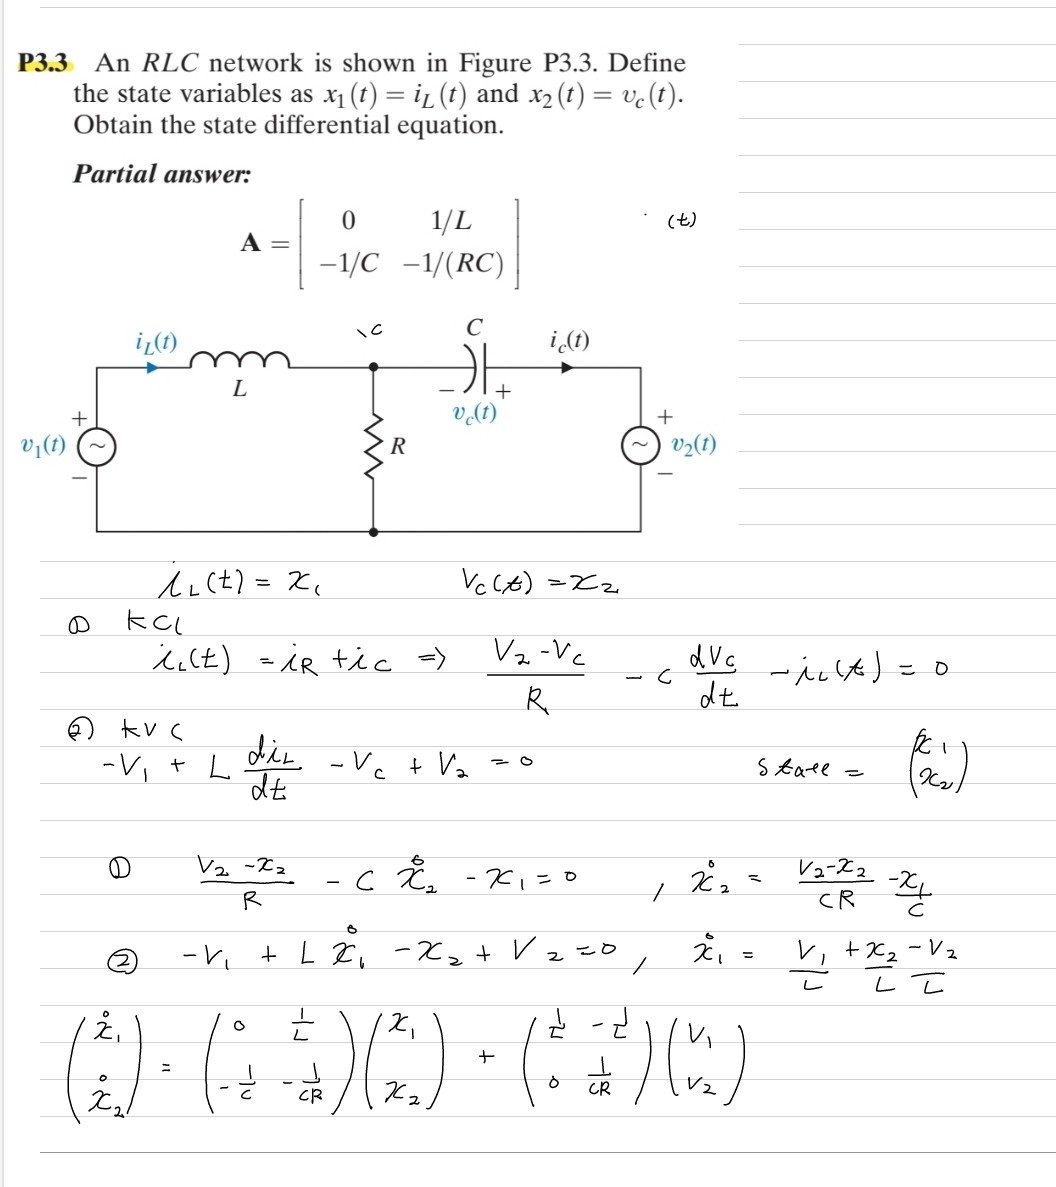 P3.3 An RLC network is shown in Figure P3.3. Define
the state variables as x₁(t) = i_L(t) and x₂(t) = v_c(t).
Obtain the state differential equation.
Partial answer:
A = [ 0 1/L
−1/C −1/(RC) ]
(t)
i_L(t) C i_c(t)
L − + 
v_c(t)
+ +
v₁(t) ~ R ~ v₂(t)
− −
i_L(t) = x₁ V_c(t) = x₂
① kcl
i_L(t) = i_R + i_c ⇒ (V₂ - V_c)/R - C dV_c/dt - i_L(t) = 0
② kv
-V₁ + L di_L/dt - V_c + V₂ = 0 state = (x₁ x₂)
① (V₂ - x₂)/R - C ẋ₂ - x₁ = 0 , ẋ₂ = (V₂-x₂)/CR - x₁/C
② -V₁ + L ẋ₁ - x₂ + V₂ = 0 , ẋ₁ = V₁/L + x₂/L - V₂/L
(ẋ₁ ẋ₂) = (0 1/L -1/C -1/CR) (x₁ x₂) + (1/L -1/L 0 1/CR) (V₁ V₂)